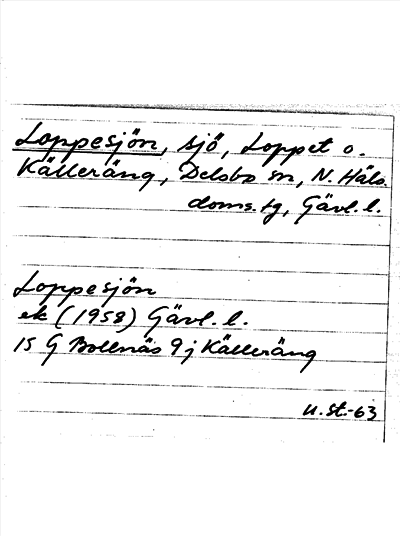 Loppesjön, sjö, Loppet o.
Källeräng, Delsbo sn, N. Häls.
doms.tg, Gävl. l.
Loppesjön
ek (1958) Gävl. l.
15 G Bollnäs 9 j Källeräng
U.St.-63